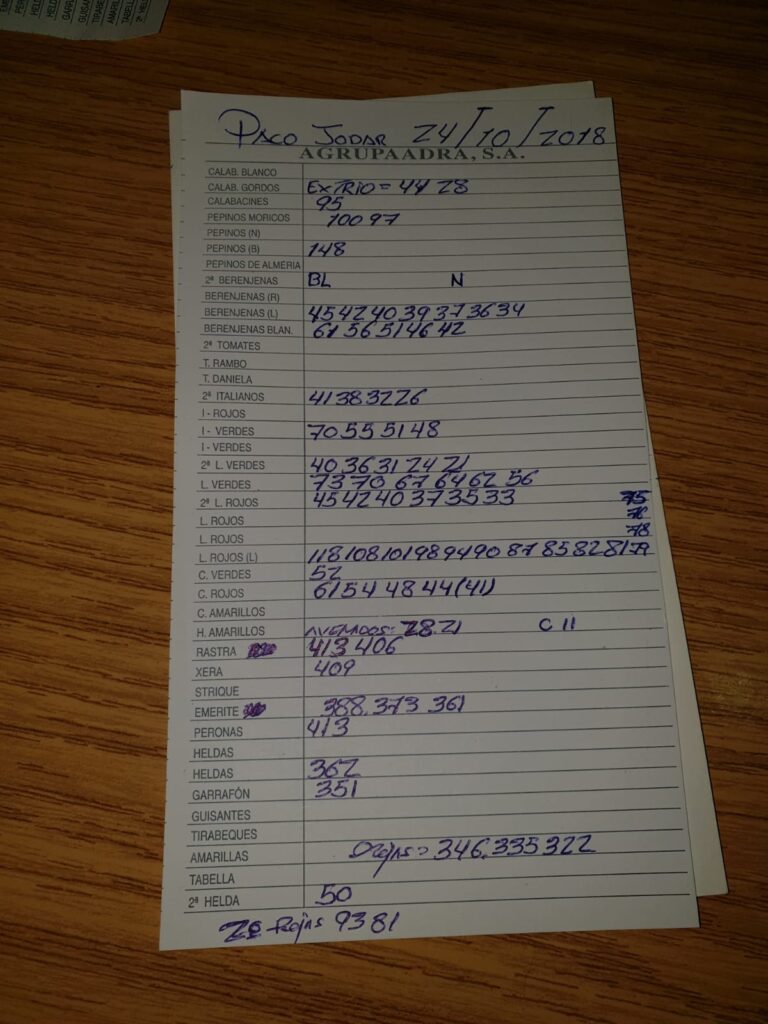 PACO JODAR 24/10/2018
AGRUPAADRA, S.A.
CALAB. BLANCO
CALAB. GORDOS EXTRIO = 44 28
CALABACINES 95
PEPINOS MORICOS 100 97
PEPINOS (N)
PEPINOS (B) 148
PEPINOS DE ALMERIA
2ª BERENJENAS BL N
BERENJENAS (R)
BERENJENAS (L) 45 42 40 39 37 36 34
BERENJENAS BLAN. 61 56 51 46 42
2ª TOMATES
T. RAMBO
T. DANIELA
2ª ITALIANOS 41 38 32 26
I - ROJOS
I - VERDES 70 55 51 48
I - VERDES
2ª L. VERDES 40 36 31 24 21
L. VERDES 73 70 67 64 62 56
2ª L. ROJOS 45 42 40 37 35 33 75
L. ROJOS
L. ROJOS 78
L. ROJOS (L) 118 108 101 98 94 90 87 85 82 81 79
C. VERDES 52
C. ROJOS 61 54 48 44 (41)
C. AMARILLOS
H. AMARILLOS 28.21 C 11
RASTRA 413 406
XERA 409
STRIQUE
EMERITE 388.373 361
PERONAS 413
HELDAS
HELDAS 362
GARRAFÓN 351
GUISANTES
TIRABEQUES
AMARILLAS 346.335 322
TABELLA
2ª HELDA 50
Rojas 93 81